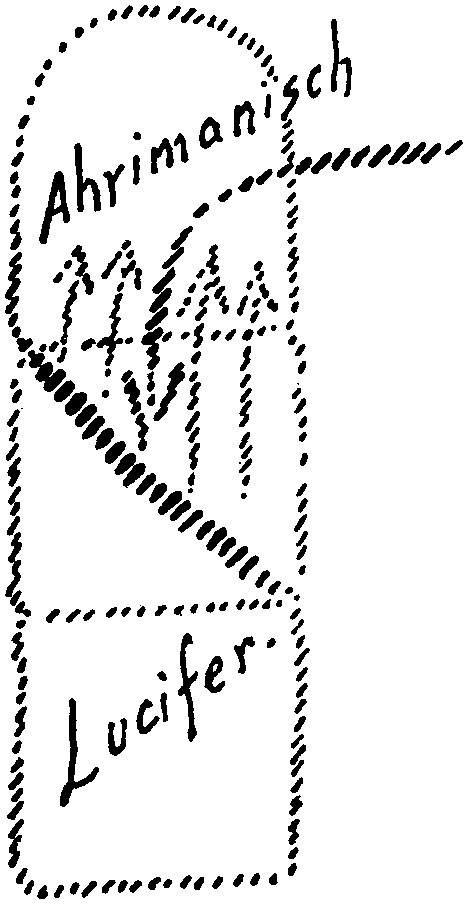 Ahrimanisch
Lucifer.